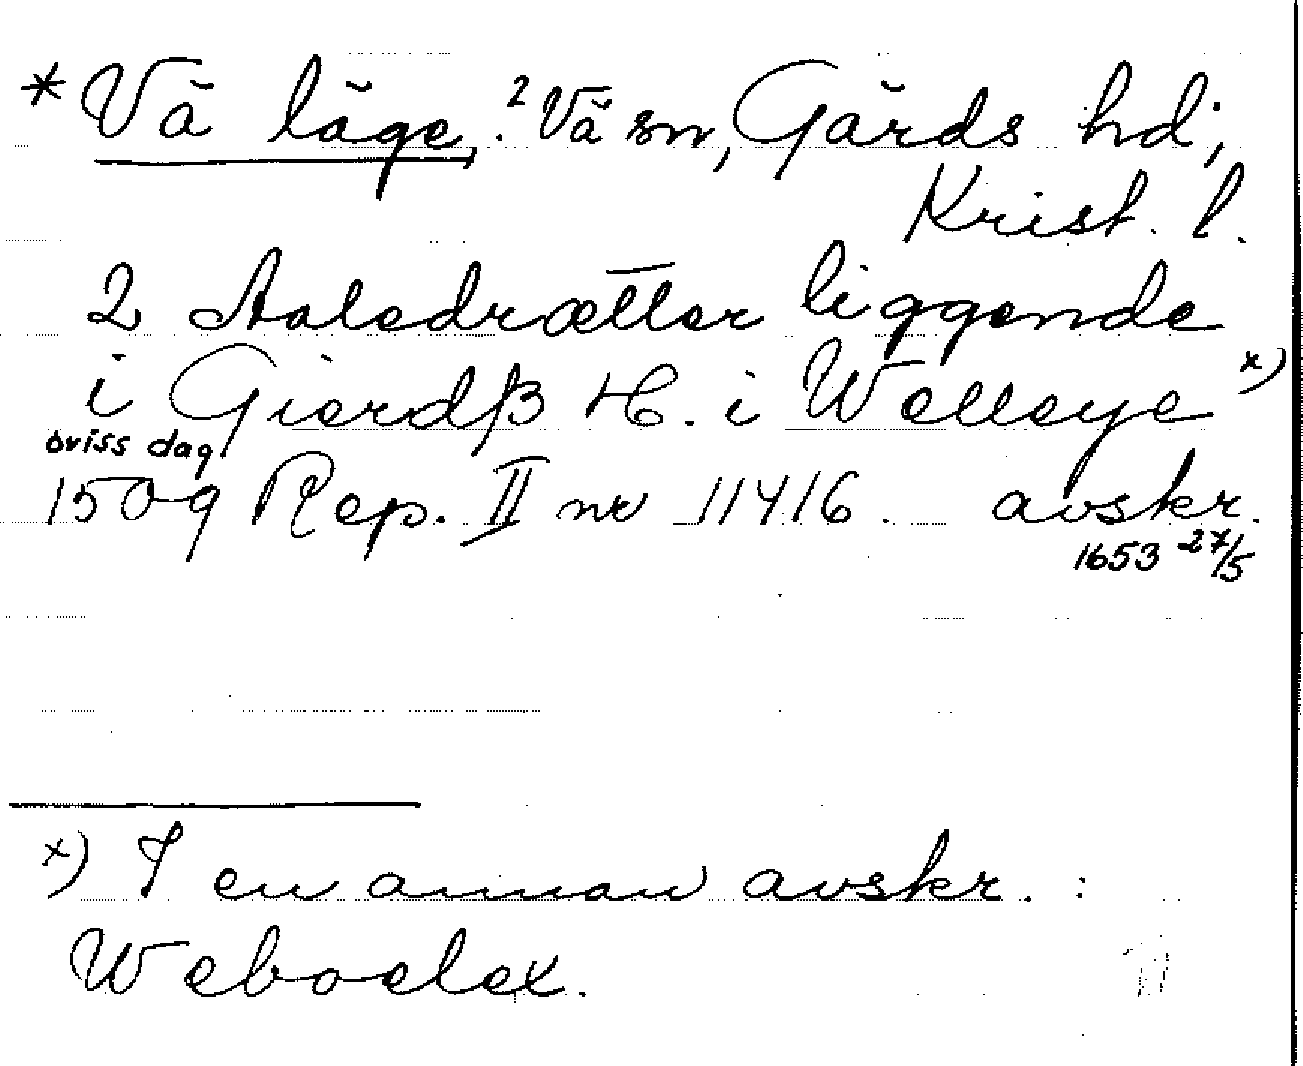 * Vä läge, .² Vä sn, Gärds hd;
Krist. l.
2 Aaledrætter liggende
i Gierdß H. i Welleye x)
oviss dag
1509 Rep. II nr 11416. avskr.
1653 27/5
x) I en annan avskr. :
Weboelex.